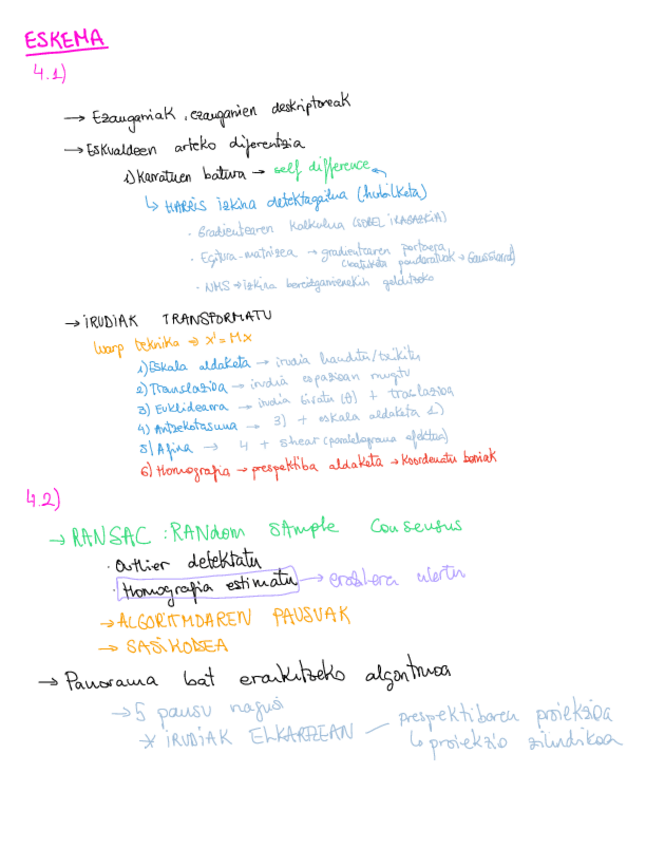 ESKEMA
4.1)
→ Ezaugarriak, ezaugarrien deskriptoreak
→ Eskualdeen arteko diferentzia
1) Karratuen batura → self difference
↳ HARRIS izkina detektagailua (hurbilketa)
· Gradientearen kalkulua (SOBEL IRAGAZKIA)
· Egitura-matrizea → gradientearen portaera
(batuketa ponderatuak → Gaussiarra)
· NMS → izkina bereizgarrienekin gelditzeko
→ IRUDIAK TRANSFORMATU
Warp teknika → x' = Mx
1) Eskala aldaketa → irudia handitu/txikitu
2) Translazioa → irudia espazioan mugitu
3) Euklidearra → irudia biratu (θ) + traslazioa
4) Antzekotasuna → 3) + eskala aldaketa 1)
5) Afina → 4 + shear (paralelogramo efektua)
6) Homografia → prespektiba aldaketa → koordenatu berriak
4.2)
→ RANSAC : RANdom SAmple Consensus
· Outlier detektatu
· Homografia estimatu → erabilera ulertu
→ ALGORITMOAREN PAUSUAK
→ SASIKODEA
→ Panorama bat eraikitzeko algoritmoa
→ 5 pausu nagusi
* IRUDIAK ELKARTZEAN — prespektibaren proiekzioa
↳ proiekzio zilindrikoa